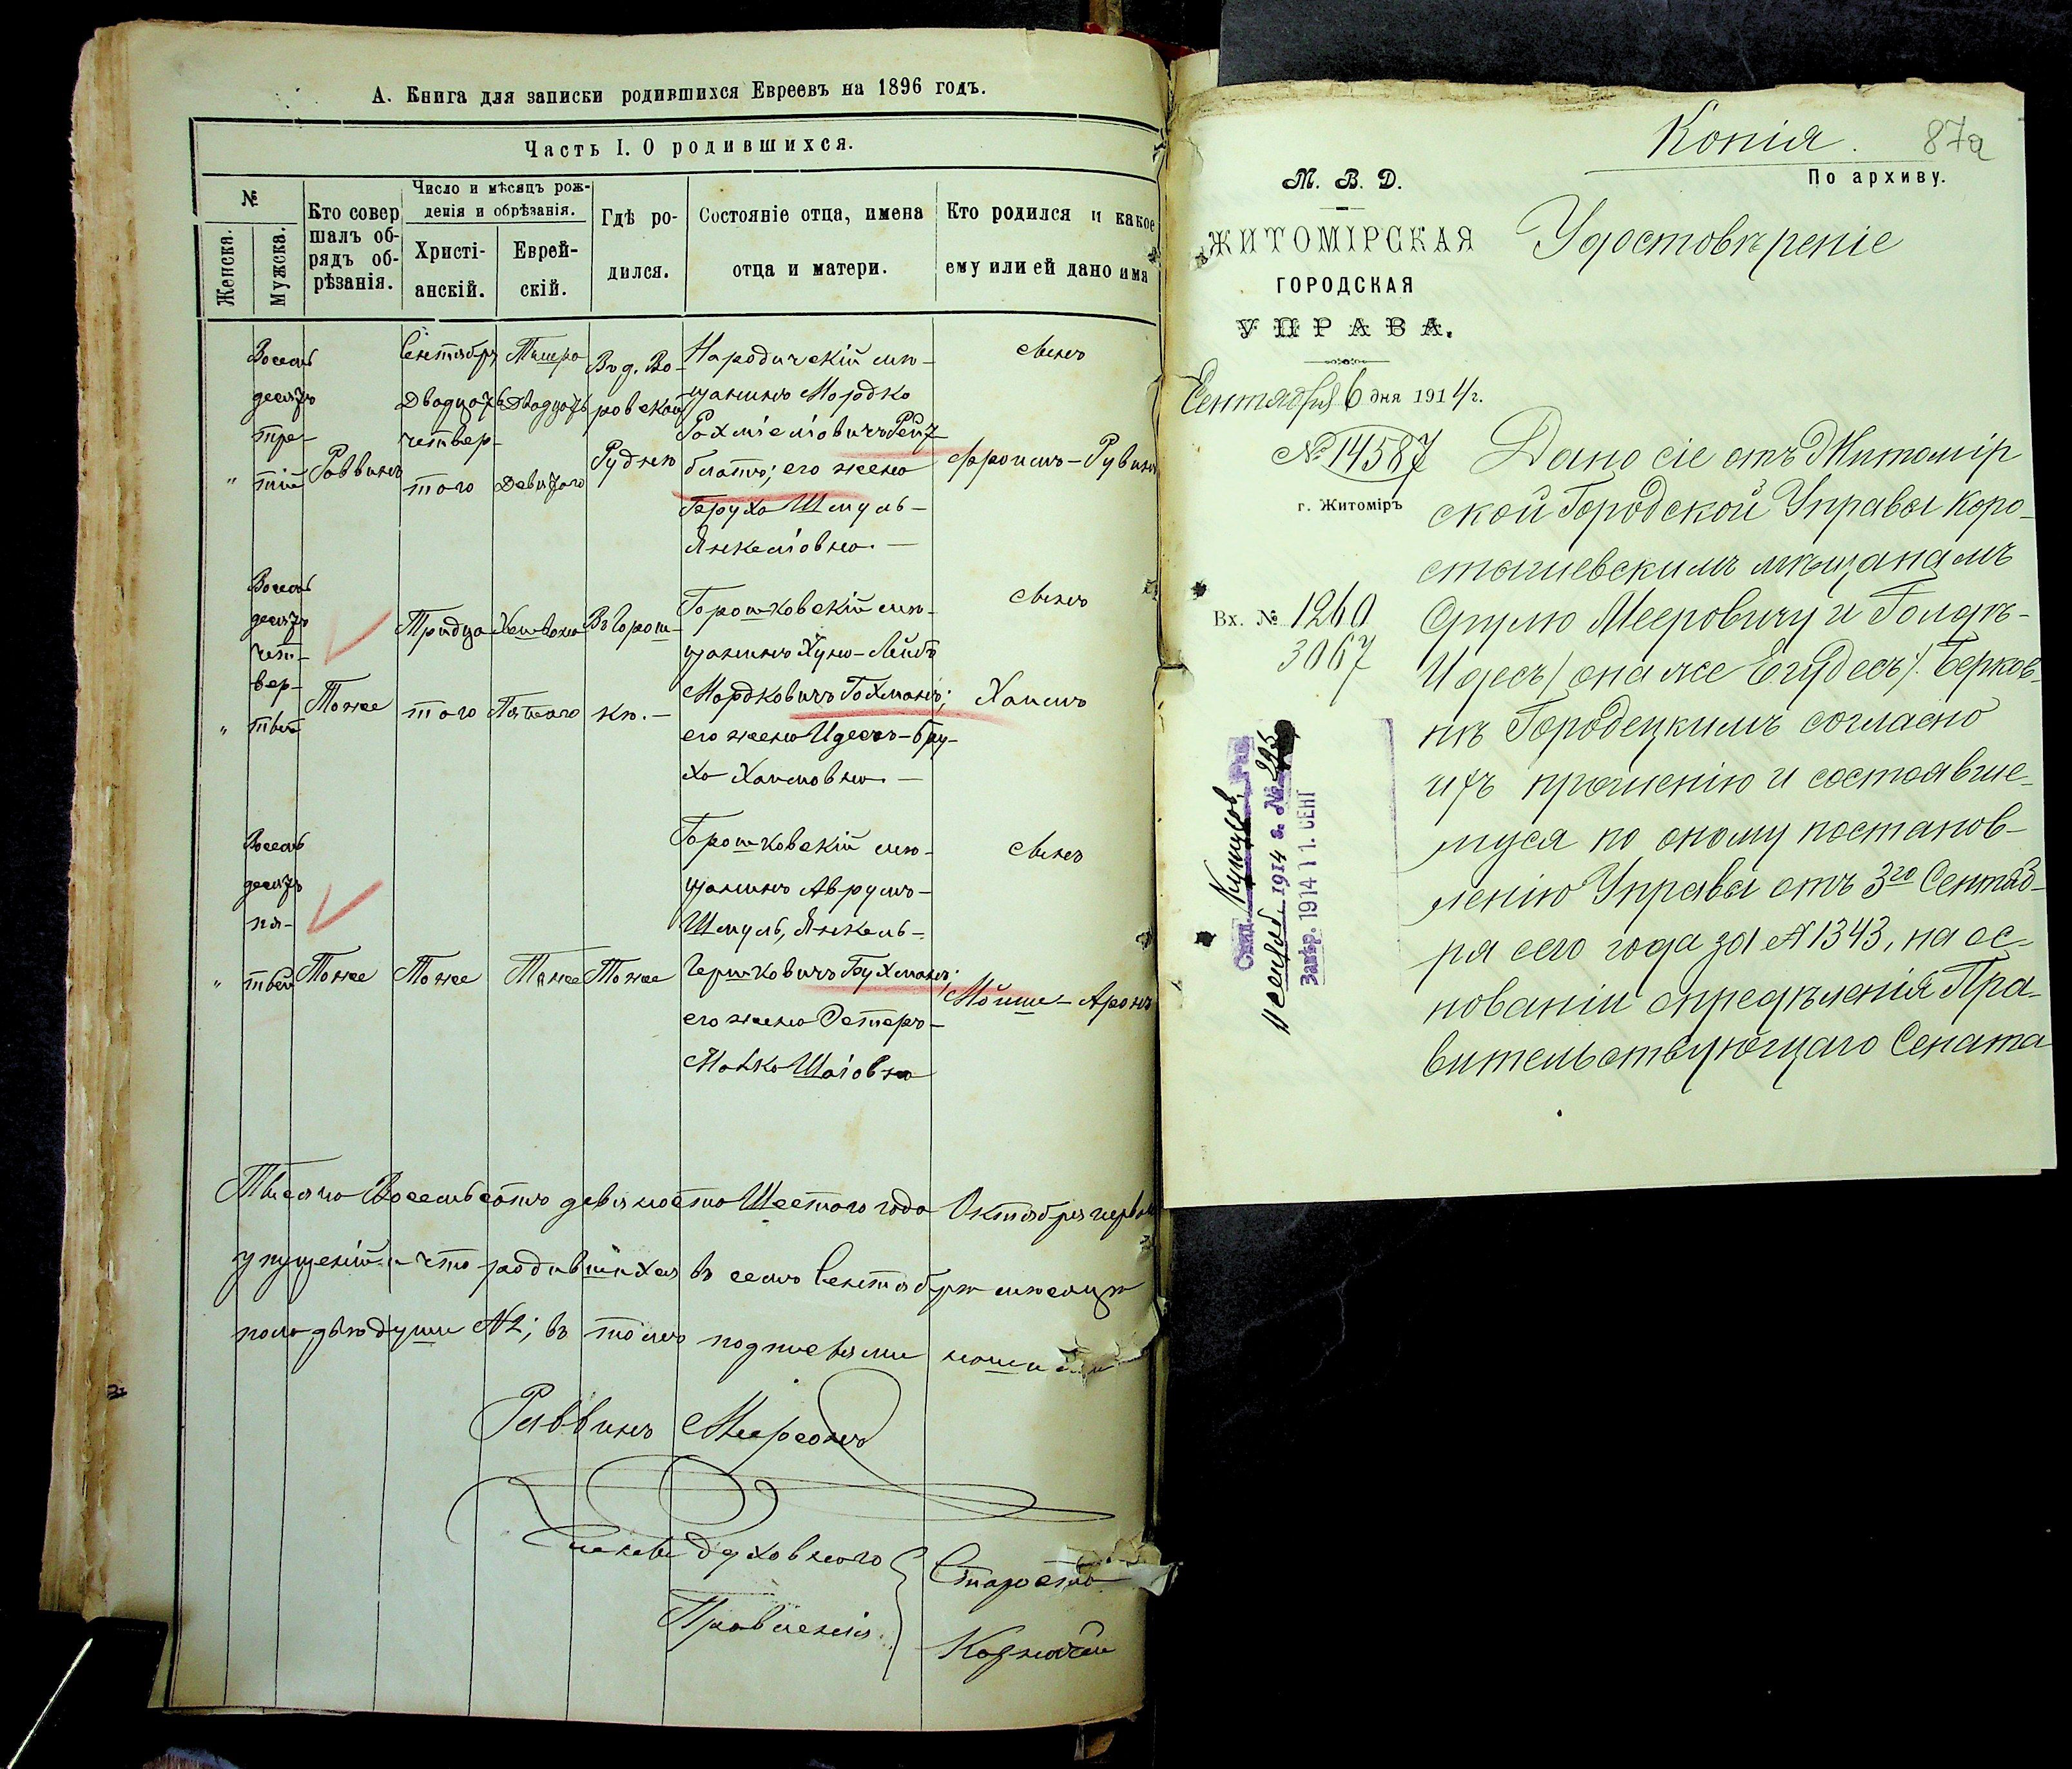 А. Книга для записки родившихся Евреевъ на 1896 годъ.
Часть I. О родившихся.
№
Женска.
Мужска.
Кто совер
шалъ об-
рядъ об-
рѣзанія.
Число и мѣсяцъ рож-
денія и обрѣзанія.
Христі-
анскій.
Еврей-
скій.
Гдѣ ро-
дился.
Состояніе отца, имена
отца и матери.
Кто родился и какое
ему или ей дано имя
"
Восемь
десятъ
тре-
тій
Раввинъ
Сентябрь
Двадцать
четвер-
таго
Тишра
Двадцать
Девятаго
Въ д. Бо-
ровской
Рудню
Народичскій мѣ-
щанинъ Мордко
Рахміеліовичъ Рейз-
блатъ; его жена
Баруха Шмуль-
Янкеліовна. —
Сынъ
Фроимъ-Рувинъ
"
Восемь
десятъ
чет-
вер-
тый
Тоже
Тридца
таго
Хешвана
Пятаго
Въ Горош-
ки. —
Горошковскій мѣ-
щанинъ Хуна-Лейбъ
Мордковичъ Гохманъ;
его жена Идесъ-бру-
ха Хаимовна. —
Сынъ
Хаимъ
"
Восемь
десятъ
пя-
тый
Тоже
Тоже
Тоже
Тоже
Горошковскій мѣ-
щанинъ Аврумъ-
Шмуль, Янкель-
Гершковичъ Бухманъ;
его жена Эстеръ-
Малка Шаіовна
Сынъ
Мойше-Аронъ
Тысяча Восемьсотъ девяносто Шестаго года Октября перваго
упущеній и что родившихся въ семъ Сентябрѣ мѣсяцѣ
пола двѣ души №2; въ томъ подписями нашими
Раввинъ Меерсонъ
Члены духовнаго
Правленія
Староста
Казначей
Копія.
87а
По архиву.
М. В. Д.
ЖИТОМІРСКАЯ
ГОРОДСКАЯ
УПРАВА.
Сентября 6 дня 1914 г.
№ 14587
г. Житоміръ
Вх. № 1260
3067
11 сентяб. 1914 г. №
Завѣр. 1914 11. СЕНТ
Удостовѣреніе
Дано сіе отъ Житомір
ской Городской Управы Коро-
стышевскимъ мѣщанамъ
Срулю Мееровичу и Голдѣ-
Идесъ (она же Егудесъ). Берков-
нѣ Городецкимъ согласно
ихъ прошенію и состоявше-
муся по оному постанов-
ленію Управы отъ 3го Сентяб-
ря сего года за № 1343, на ос-
нованіи опредѣленія Пра-
вительствующаго Сената